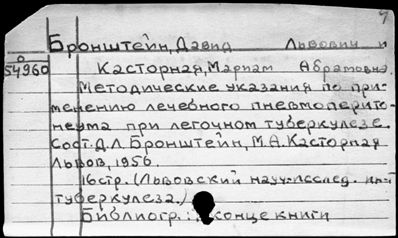 Бронштейн, Давид Львович и
О
54960 Касторная, Мариам Абрамовна.
Методические указания по при-
менению лечебного пневмоперито-
неума при легочном туберкулезе.
Сост. Д.Л. Бронштейн, М.А. Касторная
Львов, 1956.
16 стр. (Львовский науч.-исслед. ин-т
туберкулеза.)
Библиогр.: конце книги